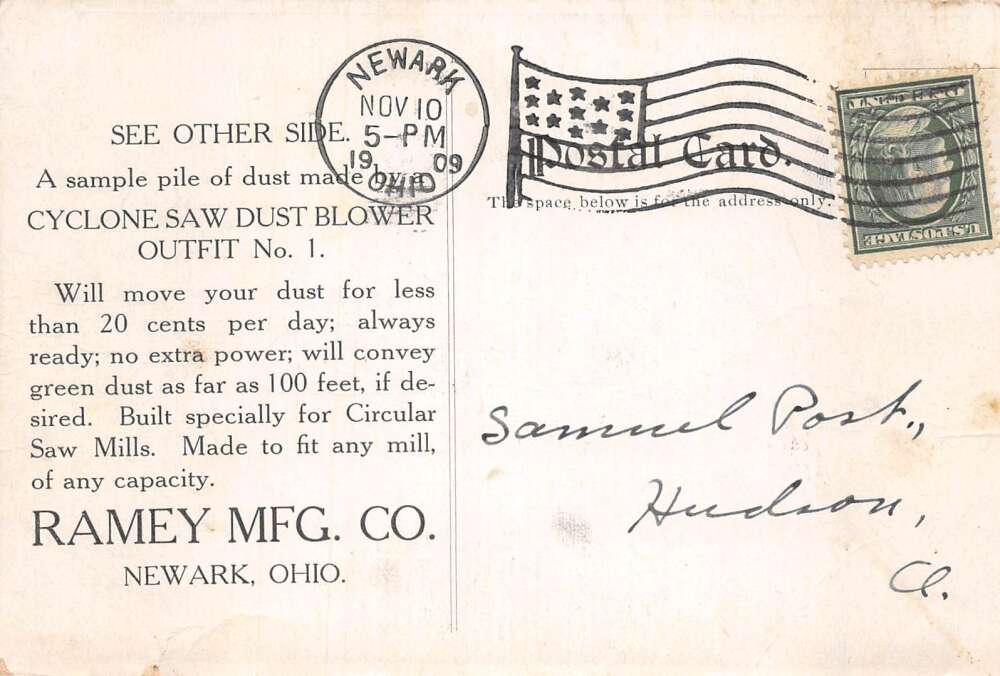 SEE OTHER SIDE.
A sample pile of dust made by a
CYCLONE SAW DUST BLOWER
OUTFIT No. 1.
Will move your dust for less
than 20 cents per day; always
ready; no extra power; will convey
green dust as far as 100 feet, if de-
sired. Built specially for Circular
Saw Mills. Made to fit any mill,
of any capacity.
RAMEY MFG. CO.
NEWARK, OHIO.
NEWARK
NOV 10
5-PM
19 09
OHIO
Postal Card.
The space below is for the address only.
U.S. POSTAGE
Samuel Post.,
Hudson,
O.